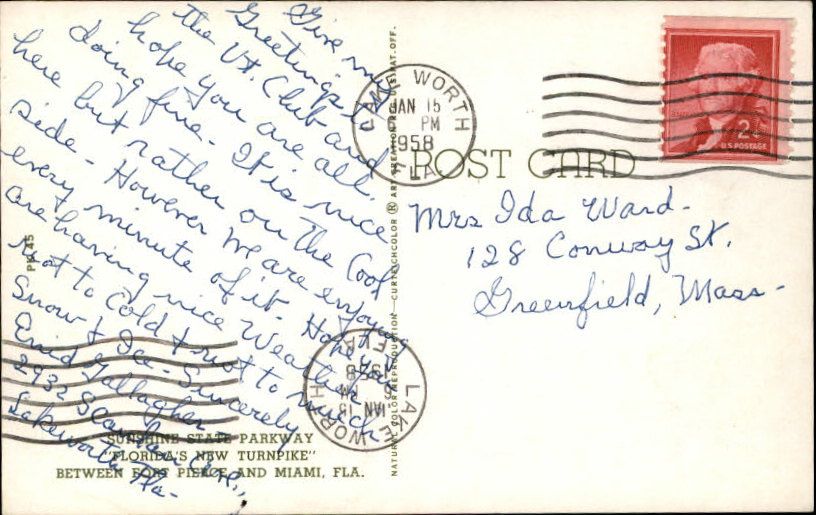 Give my
Greetings to
the Vt. Club and
hope you are all
doing fine. It is nice
here but rather on the Cool
side - However we are enjoying
every minute of it. Hope you
are having nice Weather
not to cold & not to much
Snow & Ice - Sincerely
Enid Gallagher
2932 Scanlan Ave.,
Lakeworth Fla-
SUNSHINE STATE PARKWAY
"FLORIDA'S NEW TURNPIKE"
BETWEEN FORT PIERCE AND MIAMI, FLA.
PK-45
NATURAL COLOR REPRODUCTION—CURTEICHCOLOR ® ART-CREATION REG. U.S. PAT. OFF.
LAKE WORTH
JAN 15
PM
1958
FLA.
POST CARD
2¢
U.S. POSTAGE
Mrs Ida Ward.
128 Conway St.
Greenfield, Mass-
LAKE WORTH
JAN 15
PM
1958
FLA.